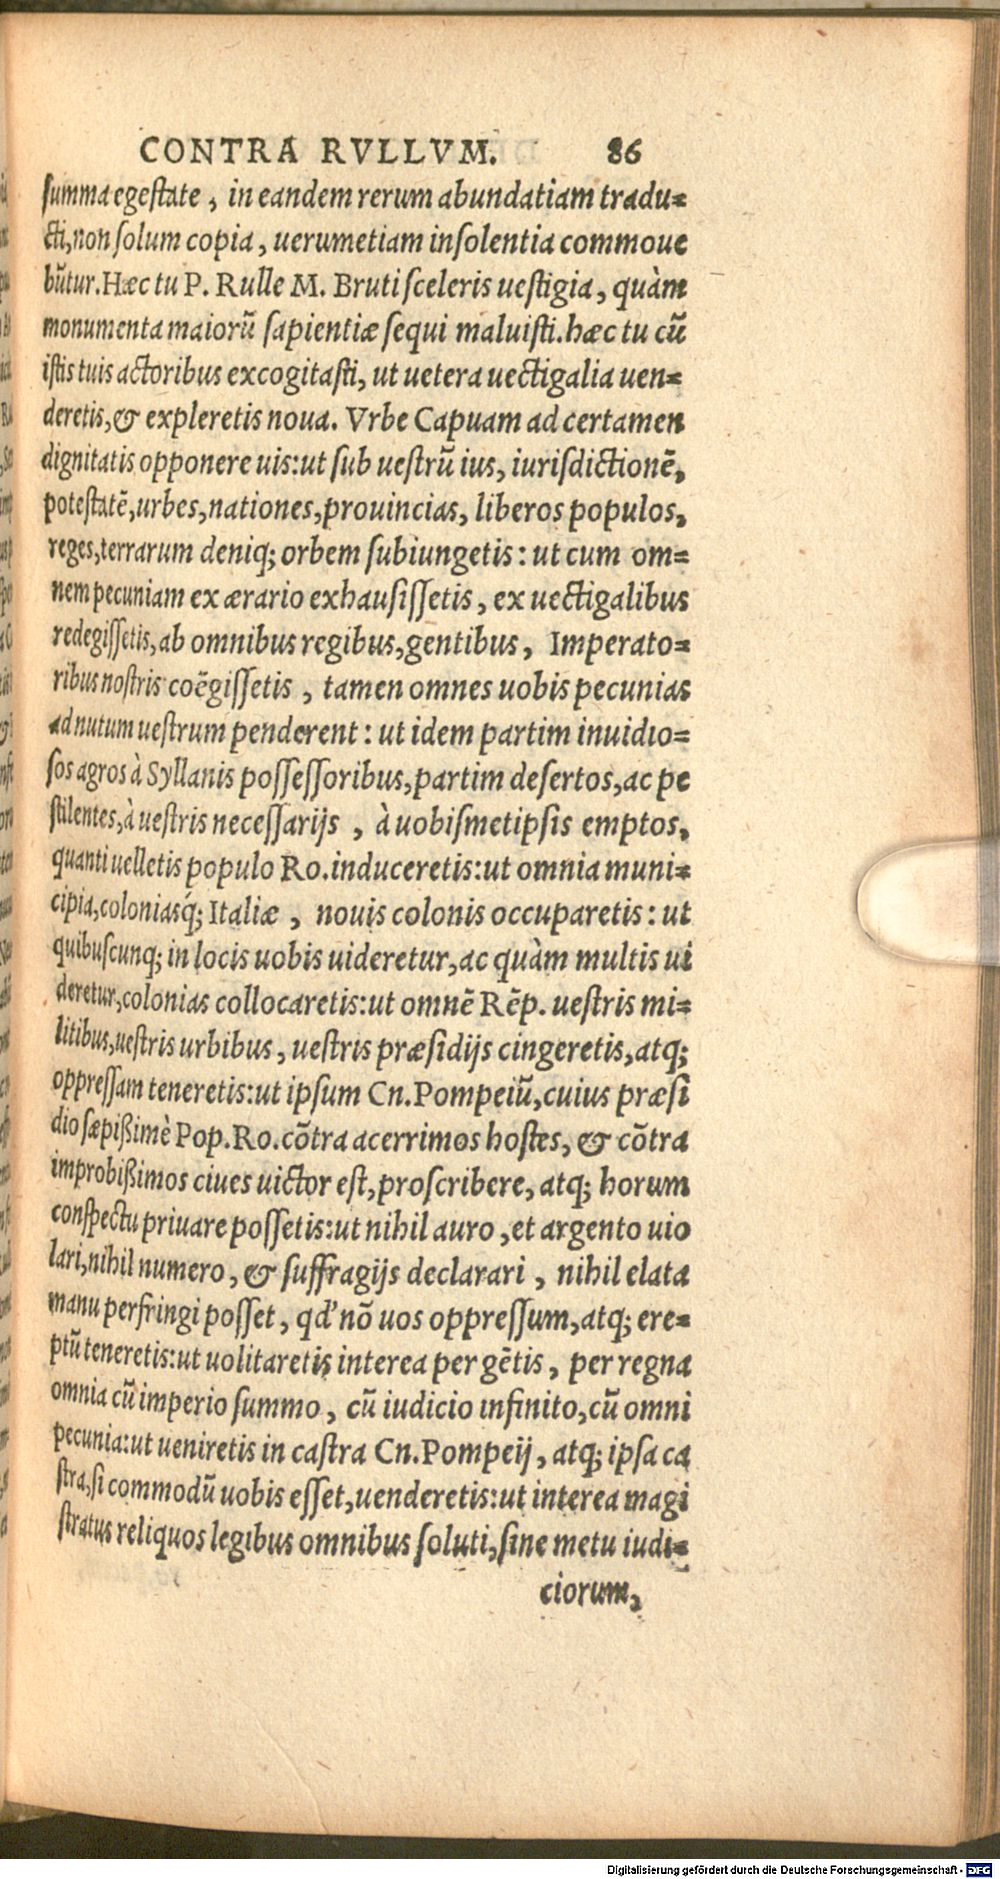 CONTRA RVLLVM. 86
summa egestate, in eandem rerum abundatiam tradu=
cti, non solum copia, uerumetiam insolentia commoue
bũtur. Hæc tu P. Rulle M. Bruti sceleris uestigia, quàm
monumenta maiorũ sapientiæ sequi maluisti. hæc tu cũ
istis tuis actoribus excogitasti, ut uetera uectigalia uen=
deretis, & expleretis noua. Vrbe Capuam ad certamen
dignitatis opponere uis: ut sub uestrũ ius, iurisdictionẽ,
potestatẽ, urbes, nationes, prouincias, liberos populos,
reges, terrarum deniq; orbem subiungetis: ut cum om=
nem pecuniam ex ærario exhausissetis, ex uectigalibus
redegissetis, ab omnibus regibus, gentibus, Imperato=
ribus nostris coẽgissetis, tamen omnes uobis pecunias
ad nutum uestrum penderent: ut idem partim inuidio=
sos agros à Syllanis possessoribus, partim desertos, ac pe
stilentes, à uestris necessarijs, à uobismetipsis emptos,
quanti uelletis populo Ro. induceretis: ut omnia muni=
cipia, coloniasq́; Italiæ, nouis colonis occuparetis: ut
quibuscunq; in locis uobis uideretur, ac quàm multis ui
deretur, colonias collocaretis: ut omnẽ Rẽp. uestris mi=
litibus, uestris urbibus, uestris præsidijs cingeretis, atq;
oppressam teneretis: ut ipsum Cn. Pompeiũ, cuius præsi
dio sæpißimè Pop. Ro. cõtra acerrimos hostes, & cõtra
improbißimos ciues uictor est, proscribere, atq; horum
conspectu priuare possetis: ut nihil auro, et argento uio
lari, nihil numero, & suffragijs declarari, nihil elata
manu perfringi posset, qd' nõ uos oppressum, atq; ere=
ptũ teneretis: ut uolitaretis interea per gẽtis, per regna
omnia cũ imperio summo, cũ iudicio infinito, cũ omni
pecunia: ut ueniretis in castra Cn. Pompeij, atq; ipsa ca
stra, si commodũ uobis esset, uenderetis: ut interea magi
stratus reliquos legibus omnibus soluti, sine metu iudi=
ciorum,
Digitalisierung gefördert durch die Deutsche Forschungsgemeinschaft - DFG